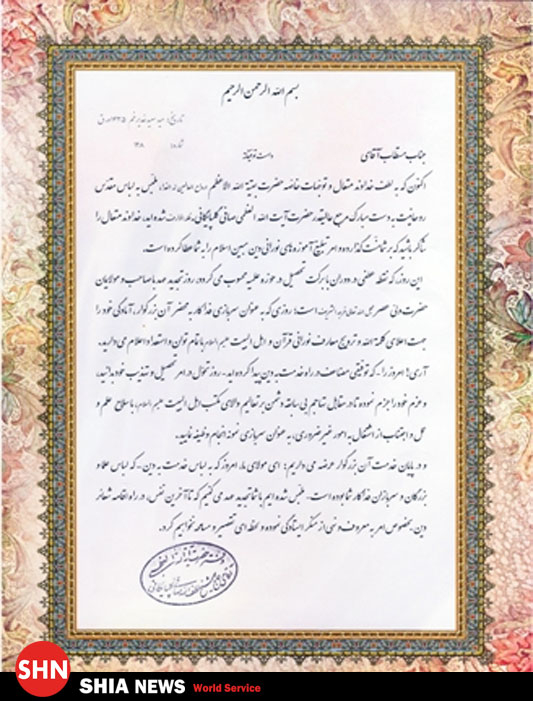 بسم الله الرحمن الرحیم
تاریخ: عید سعید غدیر خم ۱۴۳۵ه‍.ق
شماره: ۳۸
جناب مستطاب آقای دامت توفیقاته
اکنون که به لطف خداوند متعال و توجهات خاصّه حضرت بقیة الله الاعظم ارواح العالمین له الفداء، ملبّس به لباس مقدّس
روحانیت به دست مبارک مرجع عالیقدر حضرت آیت الله العظمی صافی گلپایگانی شده اید، خداوند متعال را
شاکر باشید که بر شما منّت گذارده و امر تبلیغ آموزه های نورانی دین مبین اسلام را به شما عطا کرده است.
این روز که نقطه عطفی در دوران با برکت تحصیل در حوزه علمیه محسوب می گردد، روز تجدید عهد با صاحب و مولایمان
حضرت ولی عصر عجّل الله تعالی فرجه الشریف است؛ روزی که به عنوان سربازی فداکار به محضر آن بزرگوار، آمادگی خود را
جهت اعلای کلمة الله و ترویج معارف نورانی قرآن و اهل البیت علیهم السلام با تمام توان و استعداد اعلام می دارید.
آری! امروز را - که توفیقی مضاعف در راه خدمت به دین پیدا کرده اید - روز تحوّل در امر تحصیل و تهذیب خود بدانید،
و عزم خود را جزم نموده تا در مقابل تهاجم بی سابقه دشمن بر تعالیم والای مکتب اهل البیت علیهم السلام، با سلاح علم و
عمل و اجتناب از اشتغال به امور غیر ضروری، به عنوان سربازی نمونه انجام وظیفه نمایید.
و در پایان خدمت آن بزرگوار عرضه می داریم: ای مولای ما، امروز که به لباس خدمت به دین - که لباس علما و
بزرگان و سربازان فداکار شما بوده است - ملبّس شده ایم با شما تجدید عهد می کنیم که تا آخرین نفس، در راه اقامه شعائر
دین - بخصوص امر به معروف و نهی از منکر ایستادگی نموده و لحظه ای تقصیر و مسامحه نخواهیم کرد.
دفتر حضرت آیة الله العظمی
آقای حاج شیخ لطف الله صافی گلپایگانی
SHN SHIA NEWS World Service